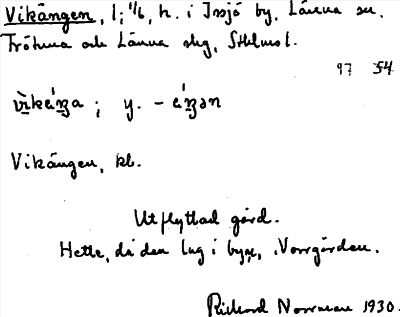 Vikängen, 1; 1/6, h. i Issjö by, Länna sn.
Frötuna och Länna slg, Sthlms l.
97 54
vìkèŋa ; y. - éŋən
Vikängen, kb.
Utflyttad gård.
Hette, då den låg i byn, Norrgården.
Richard Norrman 1930.